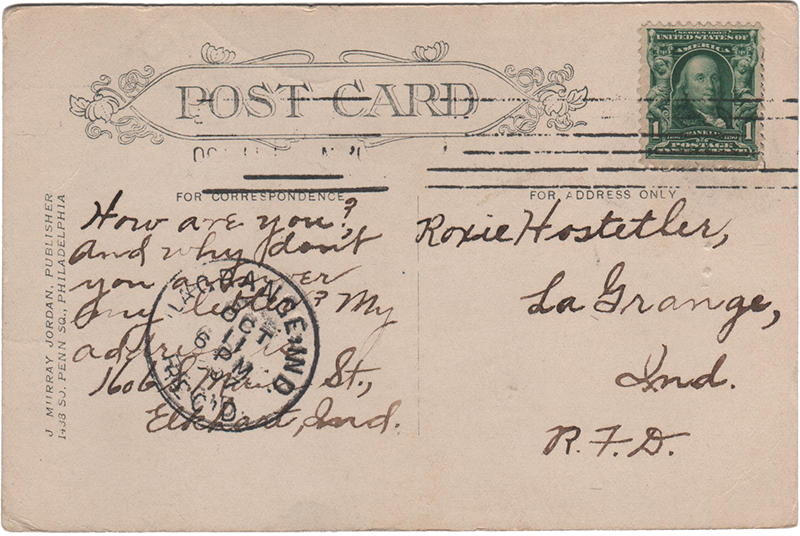 SERIES 1902
UNITED STATES OF
AMERICA
1 FRANKLIN 1
POSTAGE
ONE CENT
POST CARD
FOR CORRESPONDENCE
FOR ADDRESS ONLY
J MURRAY JORDAN, PUBLISHER
1438 SO. PENN SQ., PHILADELPHIA
How are you?,
And why don't
you answer
my letter? My
address is
St.,
Elkhart, Ind.
LAGRANGE, IND.
OCT
11
6 PM
REC'D
Roxie Hostetler,
La Grange,
Ind.
R.F.D.